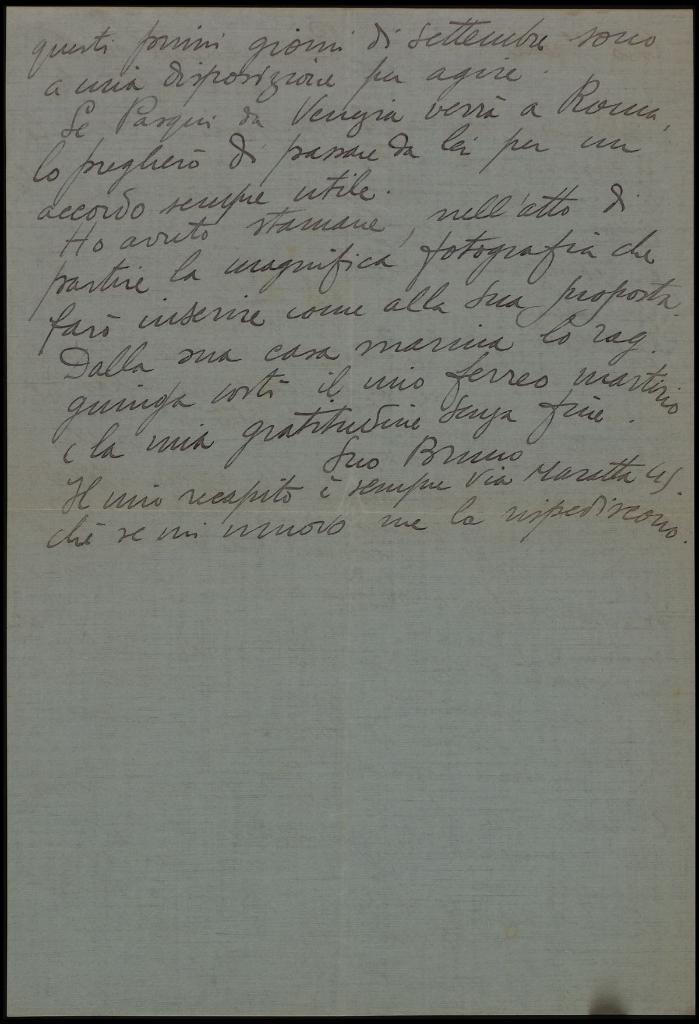 questi primi giorni di settembre sono
a mia disposizione per agire.
Se Pasqui da Venezia verrà a Roma,
lo pregherò di passare da lei per un
accordo sempre utile.
Ho avuto stamane, nell'atto di
partire la magnifica fotografia che
farò inserire come alla sua proposta.
Dalla sua casa marina lo rag
giunga costì il mio ferreo
e la mia gratitudine senza fine.
Suo Bruno
Il mio recapito è sempre Via Maratta
chè se mi muovo me la rispediscono.